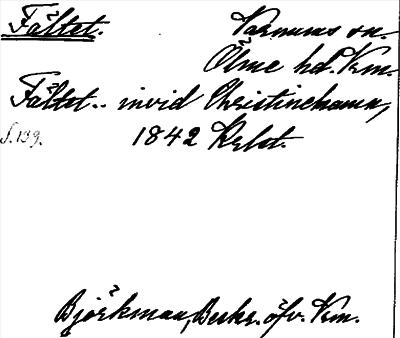 Fältet. Varnums sn.
Ölme hd. Vrm.
Fältet.. invid Christinehamn,
s. 139. 1842 Krbl.
Björkman, Beskr. öfv. Vrm.